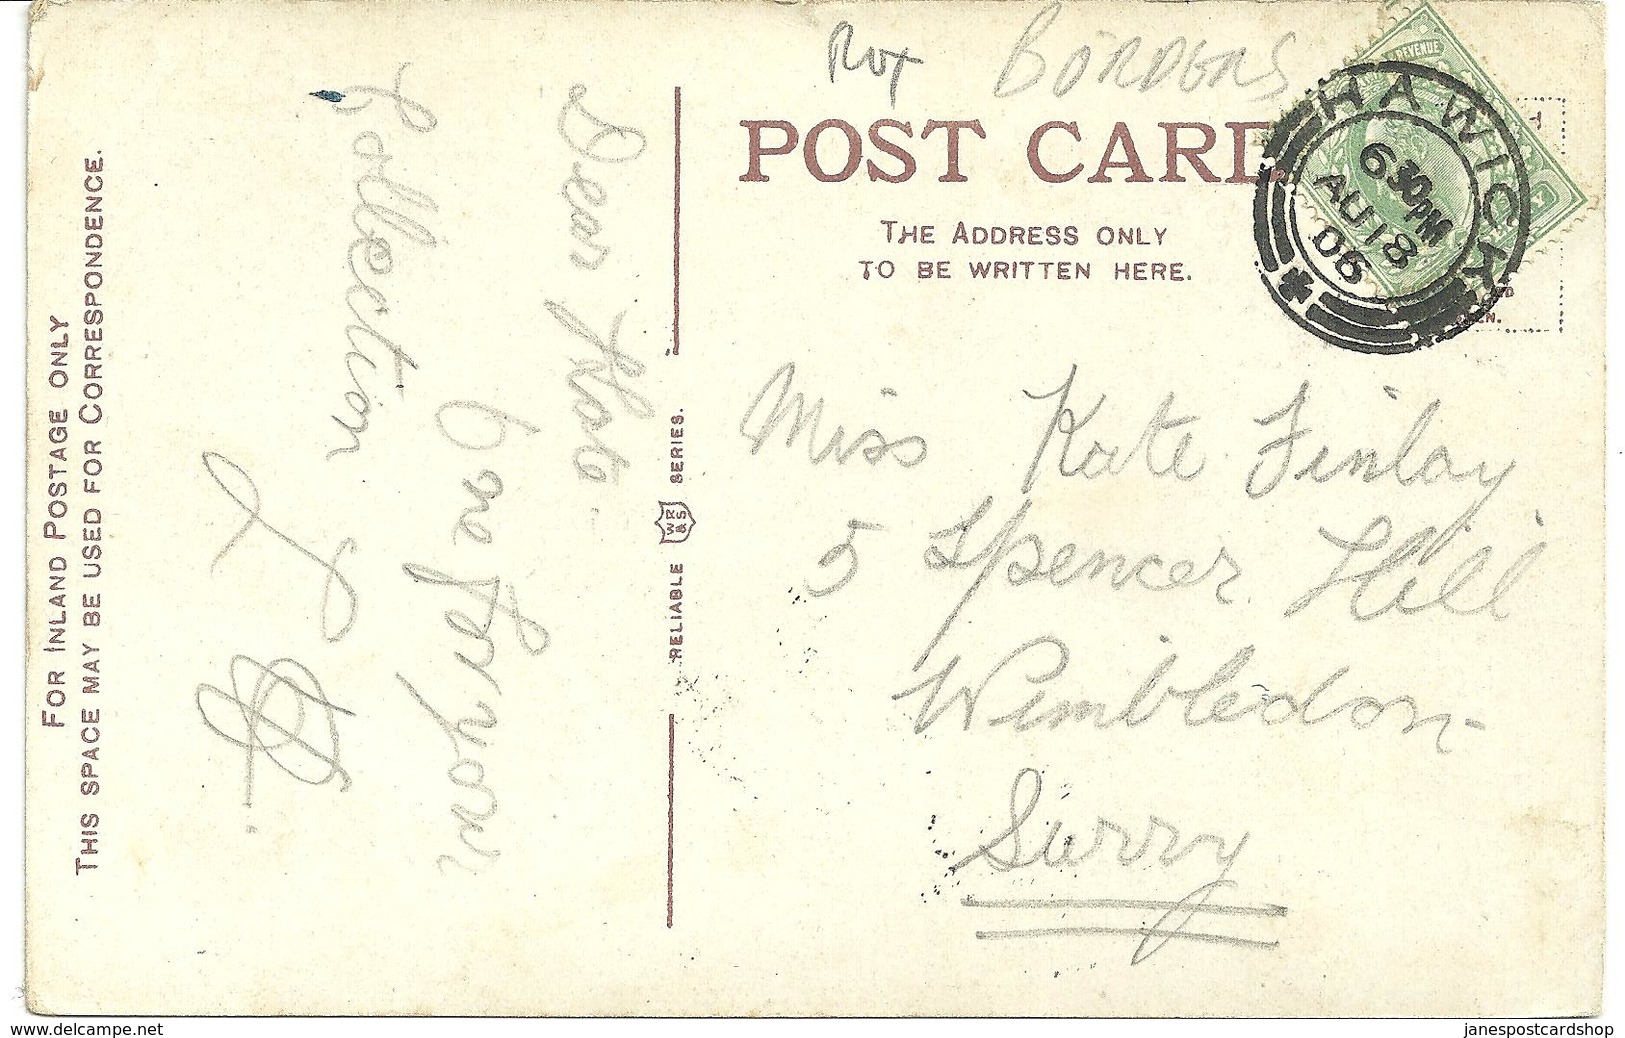 Rox BORDERS
POST CARD
THE ADDRESS ONLY
TO BE WRITTEN HERE.
REVENUE
HAWICK
6 30PM
AU 18
06
Miss Kate Finlay
5 Spencer Hill
Wimbledon
Surry
RELIABLE WR&S SERIES.
Dear Kate
One for your
Collection
FOR INLAND POSTAGE ONLY
THIS SPACE MAY BE USED FOR CORRESPONDENCE.
www.delcampe.net
janespostcardshop